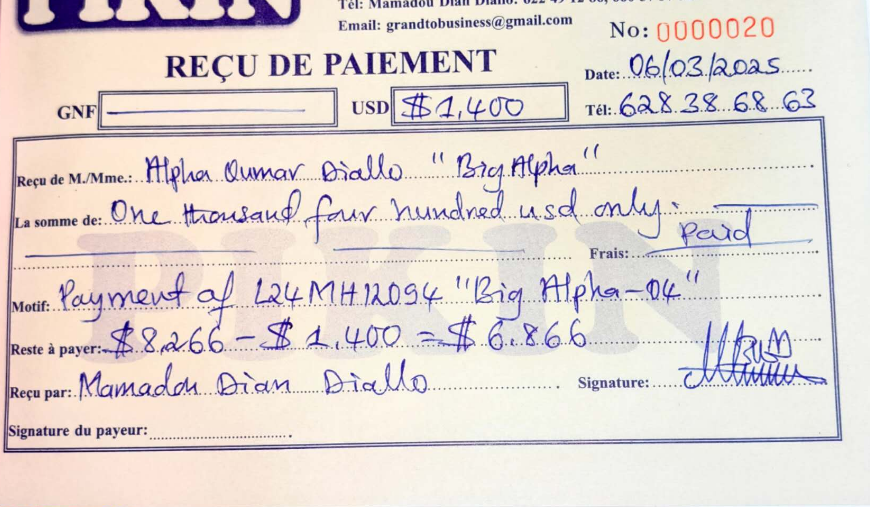 PIKIN
Tél: Mamadou Dian Diallo:
Email: grandtobusiness@gmail.com
No: 0000020
REÇU DE PAIEMENT
Date: 06/03/2025
GNF USD $1,400 Tél: 628 38 68 63
Reçu de M./Mme.: Alpha Oumar Diallo "Big Alpha"
La somme de: One thousand four hundred usd only.
Frais: Paid
Motif: Payment of L24MH12094 "Big Alpha-04"
Reste à payer: $8,266 - $1,400 = $6,866
Reçu par: Mamadou Dian Diallo Signature:
Signature du payeur:
PIKIN